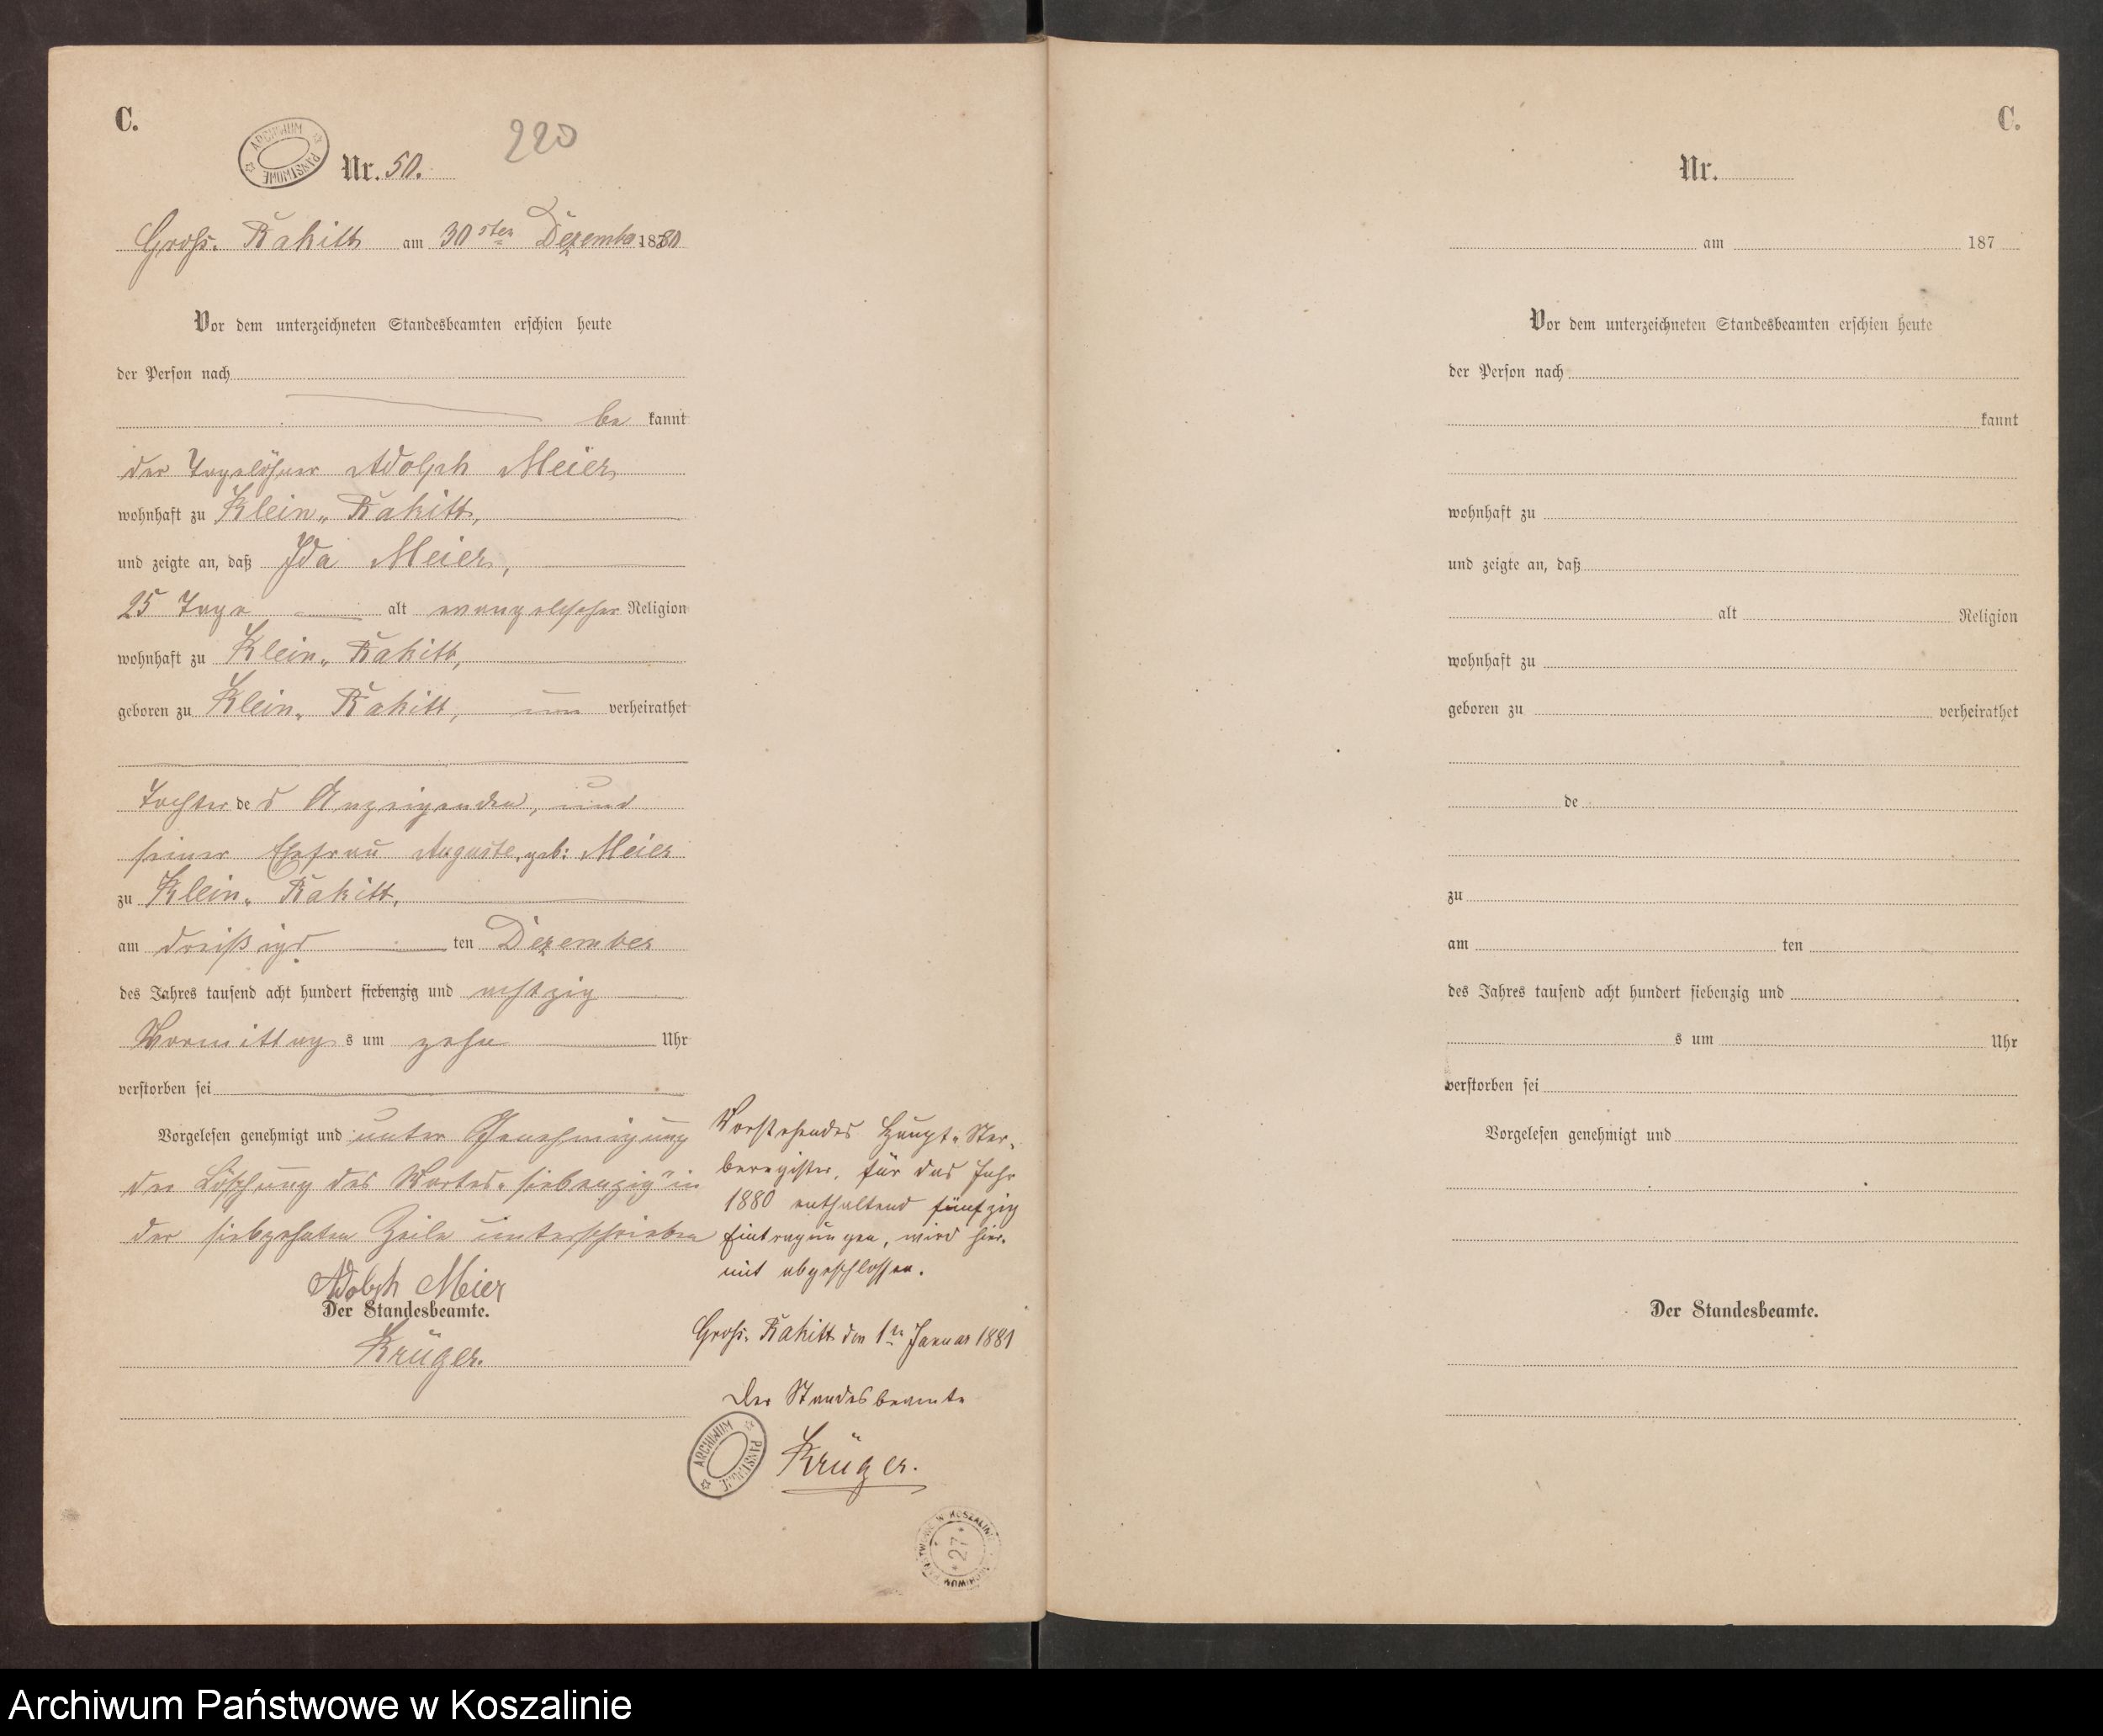 C.
ARCHIWUM PAŃSTWOWE
220
Nr. 50.
Gross. Rakitt am 30sten Dezember 1880
Vor dem unterzeichneten Standesbeamten erschien heute
der Person nach
be kannt
der Tagelöhner Adolph Meier,
wohnhaft zu Klein„ Rakitt,
und zeigte an, daß Ida Meier,
25 Tage alt evangelischer Religion
wohnhaft zu Klein„ Rakitt,
geboren zu Klein„ Rakitt, un verheirathet
Tochter de s Anzeigenden, und
seiner Ehefrau Auguste, geb: Meier
zu Klein„ Rakitt,
am dreißigs ten Dezember
des Jahres tausend acht hundert siebenzig und achtzig
Vormittag s um zehn Uhr
verstorben sei
Vorgelesen genehmigt und unter Genehmigung
der Löschung des Wortes „siebenzig" in
der siebzehnten Zeile unterschrieben
Adolph Meier
Der Standesbeamte.
Krüger.
Vorstehendes Haupt„ Ster„
beregister, für das Jahr
1880 enthaltend fünfzig
Eintragungen, wird hier„
mit abgeschlossen.
Gross. Rakitt den 1n Januar 1881
Der Standesbeamte
Krüger.
ARCHIWUM PAŃSTWOWE
ARCHIWUM PAŃSTWOWE W KOSZALINIE
* 27 *
C.
Nr.
am 187
Vor dem unterzeichneten Standesbeamten erschien heute
der Person nach
kannt
wohnhaft zu
und zeigte an, daß
alt Religion
wohnhaft zu
geboren zu verheirathet
de
zu
am ten
des Jahres tausend acht hundert siebenzig und
s um Uhr
verstorben sei
Vorgelesen genehmigt und
Der Standesbeamte.
Archiwum Państwowe w Koszalinie